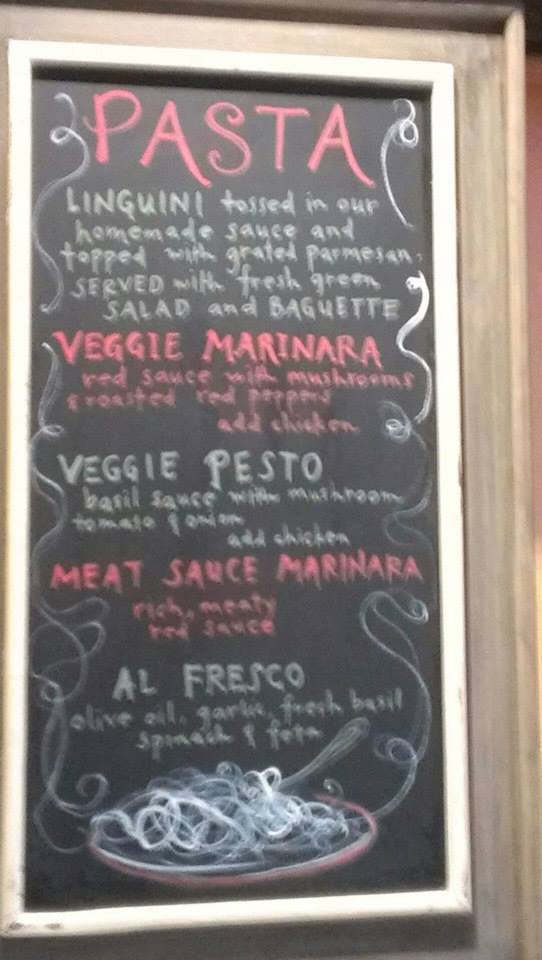 PASTA
LINGUINI tossed in our
homemade sauce and
topped with grated parmesan.
SERVED with fresh green
SALAD and BAGUETTE
VEGGIE MARINARA
red sauce with mushrooms
& roasted red peppers
add chicken
VEGGIE PESTO
basil sauce with mushroom
tomato & onion
add chicken
MEAT SAUCE MARINARA
rich, meaty
red sauce
AL FRESCO
olive oil, garlic, fresh basil
spinach & feta